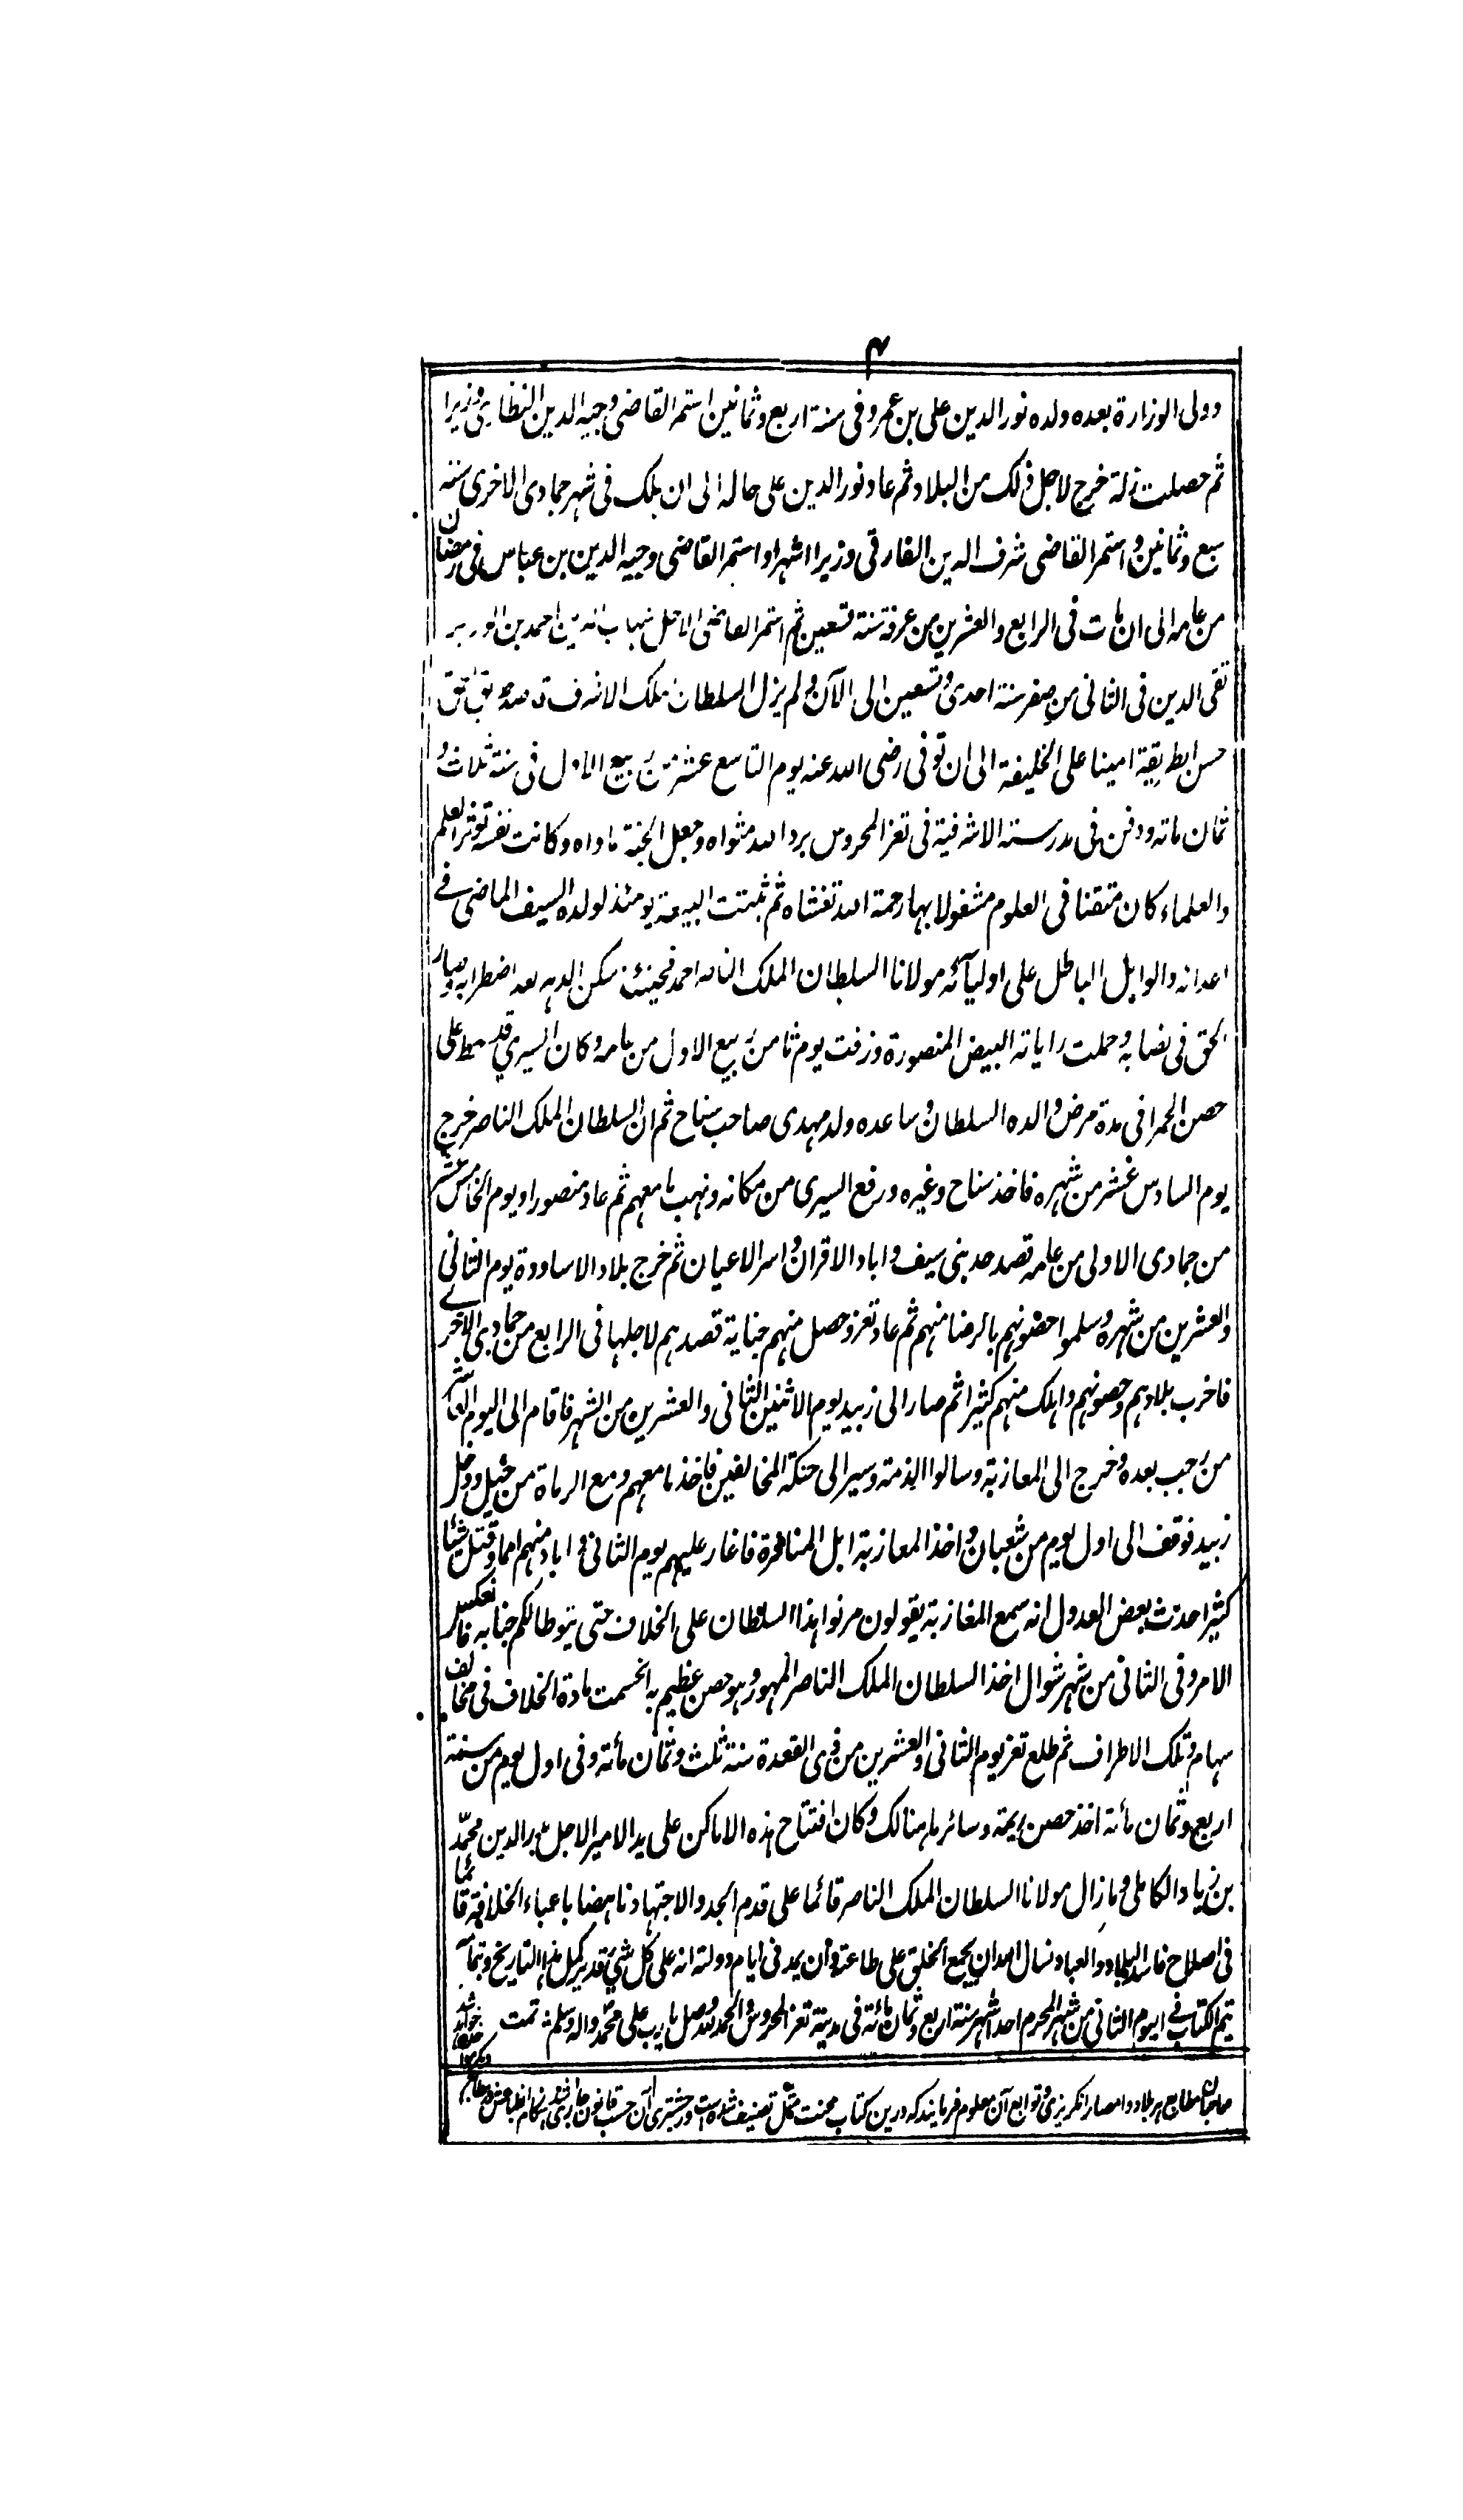 وولى الوزارة بعده ولده نور الدين على بن عمر وفى سنة اربع وثمانين استمر القاضى وجيه الدين النظارى وزيرا
ثم حصلت زلة خرج لاجل ذلك من البلاد ثم عاد نور الدين على حاله الى ان هلك فى شهر جمادى الاخرى سنة
سبع وثمانين واستمر القاضى شرف الدين الفارقى وزيرا اشهرا واستمر القاضى وجيه الدين بن عباس فى رمضان
من عامه الى ان مات فى الرابع والعشرين من عرفة سنة تسعين ثم استمر القاضى الاجل شهاب الدين احمد بن
تقى الدين فى الثانى من صفر سنة احدى وتسعين الى الآن ولم يزل السلطان الملك الاشرف
حسن الطريقة امينا على الخليفة الى ان توفى رضى الله عنه يوم التاسع عشر من ربيع الاول فى سنة ثلاث و
ثمان مائه ودفن فى مدرسته الاشرفية فى تعز المحروس برد الله مثواه وجعل الجنة ماواه وكانت نفسه تؤثر العلم
والعلماء كان متقنا فى العلوم مشغولا بها رحمة الله تغشاه ثم ثبتت البيعة يومئذ لولده السيف الماضى فے
اعدائه والوابل الباطل على اوليآئه مولانا السلطان الملك الناصر احمد فحينئذ سكن الدهر بعد اضطرابه وصار
الحق فى نصابه وحملت راياته البيض المنصورة وزفت يوم ثامن ربيع الاول من عامه وكان السيري قد حط على
حصن الحمرا فى مدة مرض والده السلطان وساعده ولد مهدى صاحب سناح ثم ان السلطان الملك الناصر خرج
يوم السادس عشر من شهره فاخذ سناح وغيره ورفع السيرى من مكانه ونهب ما معهم ثم عاد منصورا ويوم الخامس عشر
من جمادى الاولى من عامه قصد حد بنى سيف واباد الاقران واسر الاعيان ثم خرج بلاد الاساودة يوم الثانى
والعشرين من شهره وسلموا حصونهم بالرضا منهم ثم عاد تعز وحصل منهم جناية قصدهم لاجلها فى الرابع من جمادى الاخرے
فاخرب بلادهم وحصونهم واهلك منهم كثيرا ثم صار الى زبيد يوم الاثنين الثانى والعشرين من الشهر فاقام الى اليوم العاشر
من رجب بعده وخرج الى المعازبة وسالوا الذمة وسير الى حنكة المخالفين فاخذ ما معهم ومع الرماة من خيل ودخل
زبيد فوقف الى اول يوم من شعبان واخذ المعازبة ابل المناخرة فاغار عليهم يوم الثانى واباد منهم امما وقتل شيئا
كثيرا حدث بعض العدول انه سمع المغازبة يقولون مرنوا هذا السلطان على الخلاف حتى يتوطا لكم جنابه فانعكس
الامر وفى الثانى من شهر شوال اخذ السلطان الملك الناصر المهور وهو حصن عظيم به انحسمت مادة الخلاف فى مخالف
سهام وتلك الاطراف ثم طلع تعز يوم الثانى والعشرين من ذى القعدة سنة ثلث وثمان مائة وفى اول يوم من سنة
اربع وثمان مائة اخذ حصن ريمة وسائر ما هنالك وكان افتتاح هذه الاماكن على يد الامير الاجل بدر الدين محمّد
بن زياد الكاملى وما زال مولانا السلطان الملك الناصر قائما على قدم الجد والاجتهاد ناهضا باعباء الخلافة قائما
فى اصلاح فاسد البلاد والعباد نسال الله ان يجمع الخلق على طاعته وان يمد فى ايام دولته انه على كل شئ قدير كمل هذا التاريخ وبتمامه
يتم الكتاب فے اليوم الثانى من شهر المحرم احد اشهر سنة اربع وثمان مائة فى مدينة تعز المحروس والحمد لله وصل يا رب على محمّد واله وسلم تمت
صاحبان مطابع هر بلاد وامصار انگريزى وتوابع آن معلوم فرمايند كه درين كتاب محنت مكمل تصنيف شده است ورجسترى آن حسب قانون